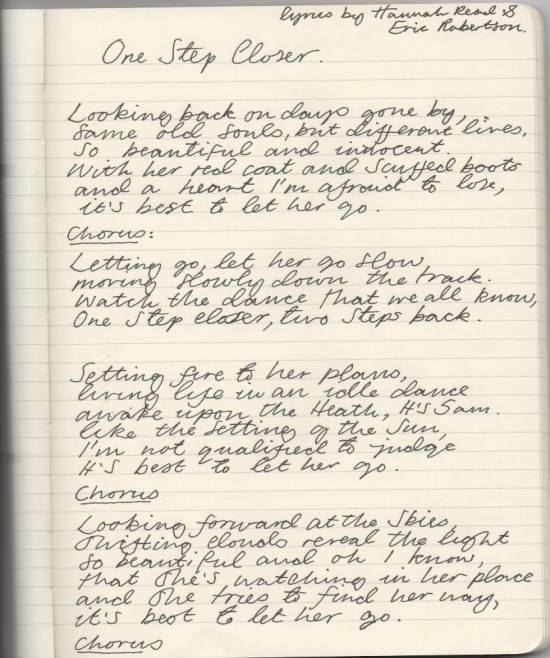 lyrics by Hannah Read &
Eric Robertson.
One Step Closer.
Looking back on days gone by,
same old souls, but different lives,
so beautiful and innocent.
With her red coat and scuffed boots
and a heart I'm afraid to lose,
it's best to let her go.
Chorus:
Letting go, let her go slow,
moving slowly down the track.
Watch the dance that we all know,
One step closer, two steps back.
Setting fire to her plans,
living life in an idle dance
awake upon the Heath, it's 5am.
like the setting of the sun,
I'm not qualified to judge
it's best to let her go.
Chorus
Looking forward at the skies,
shifting clouds reveal the light
so beautiful and oh I know,
that she's watching in her place
and she tries to find her way,
it's best to let her go.
Chorus